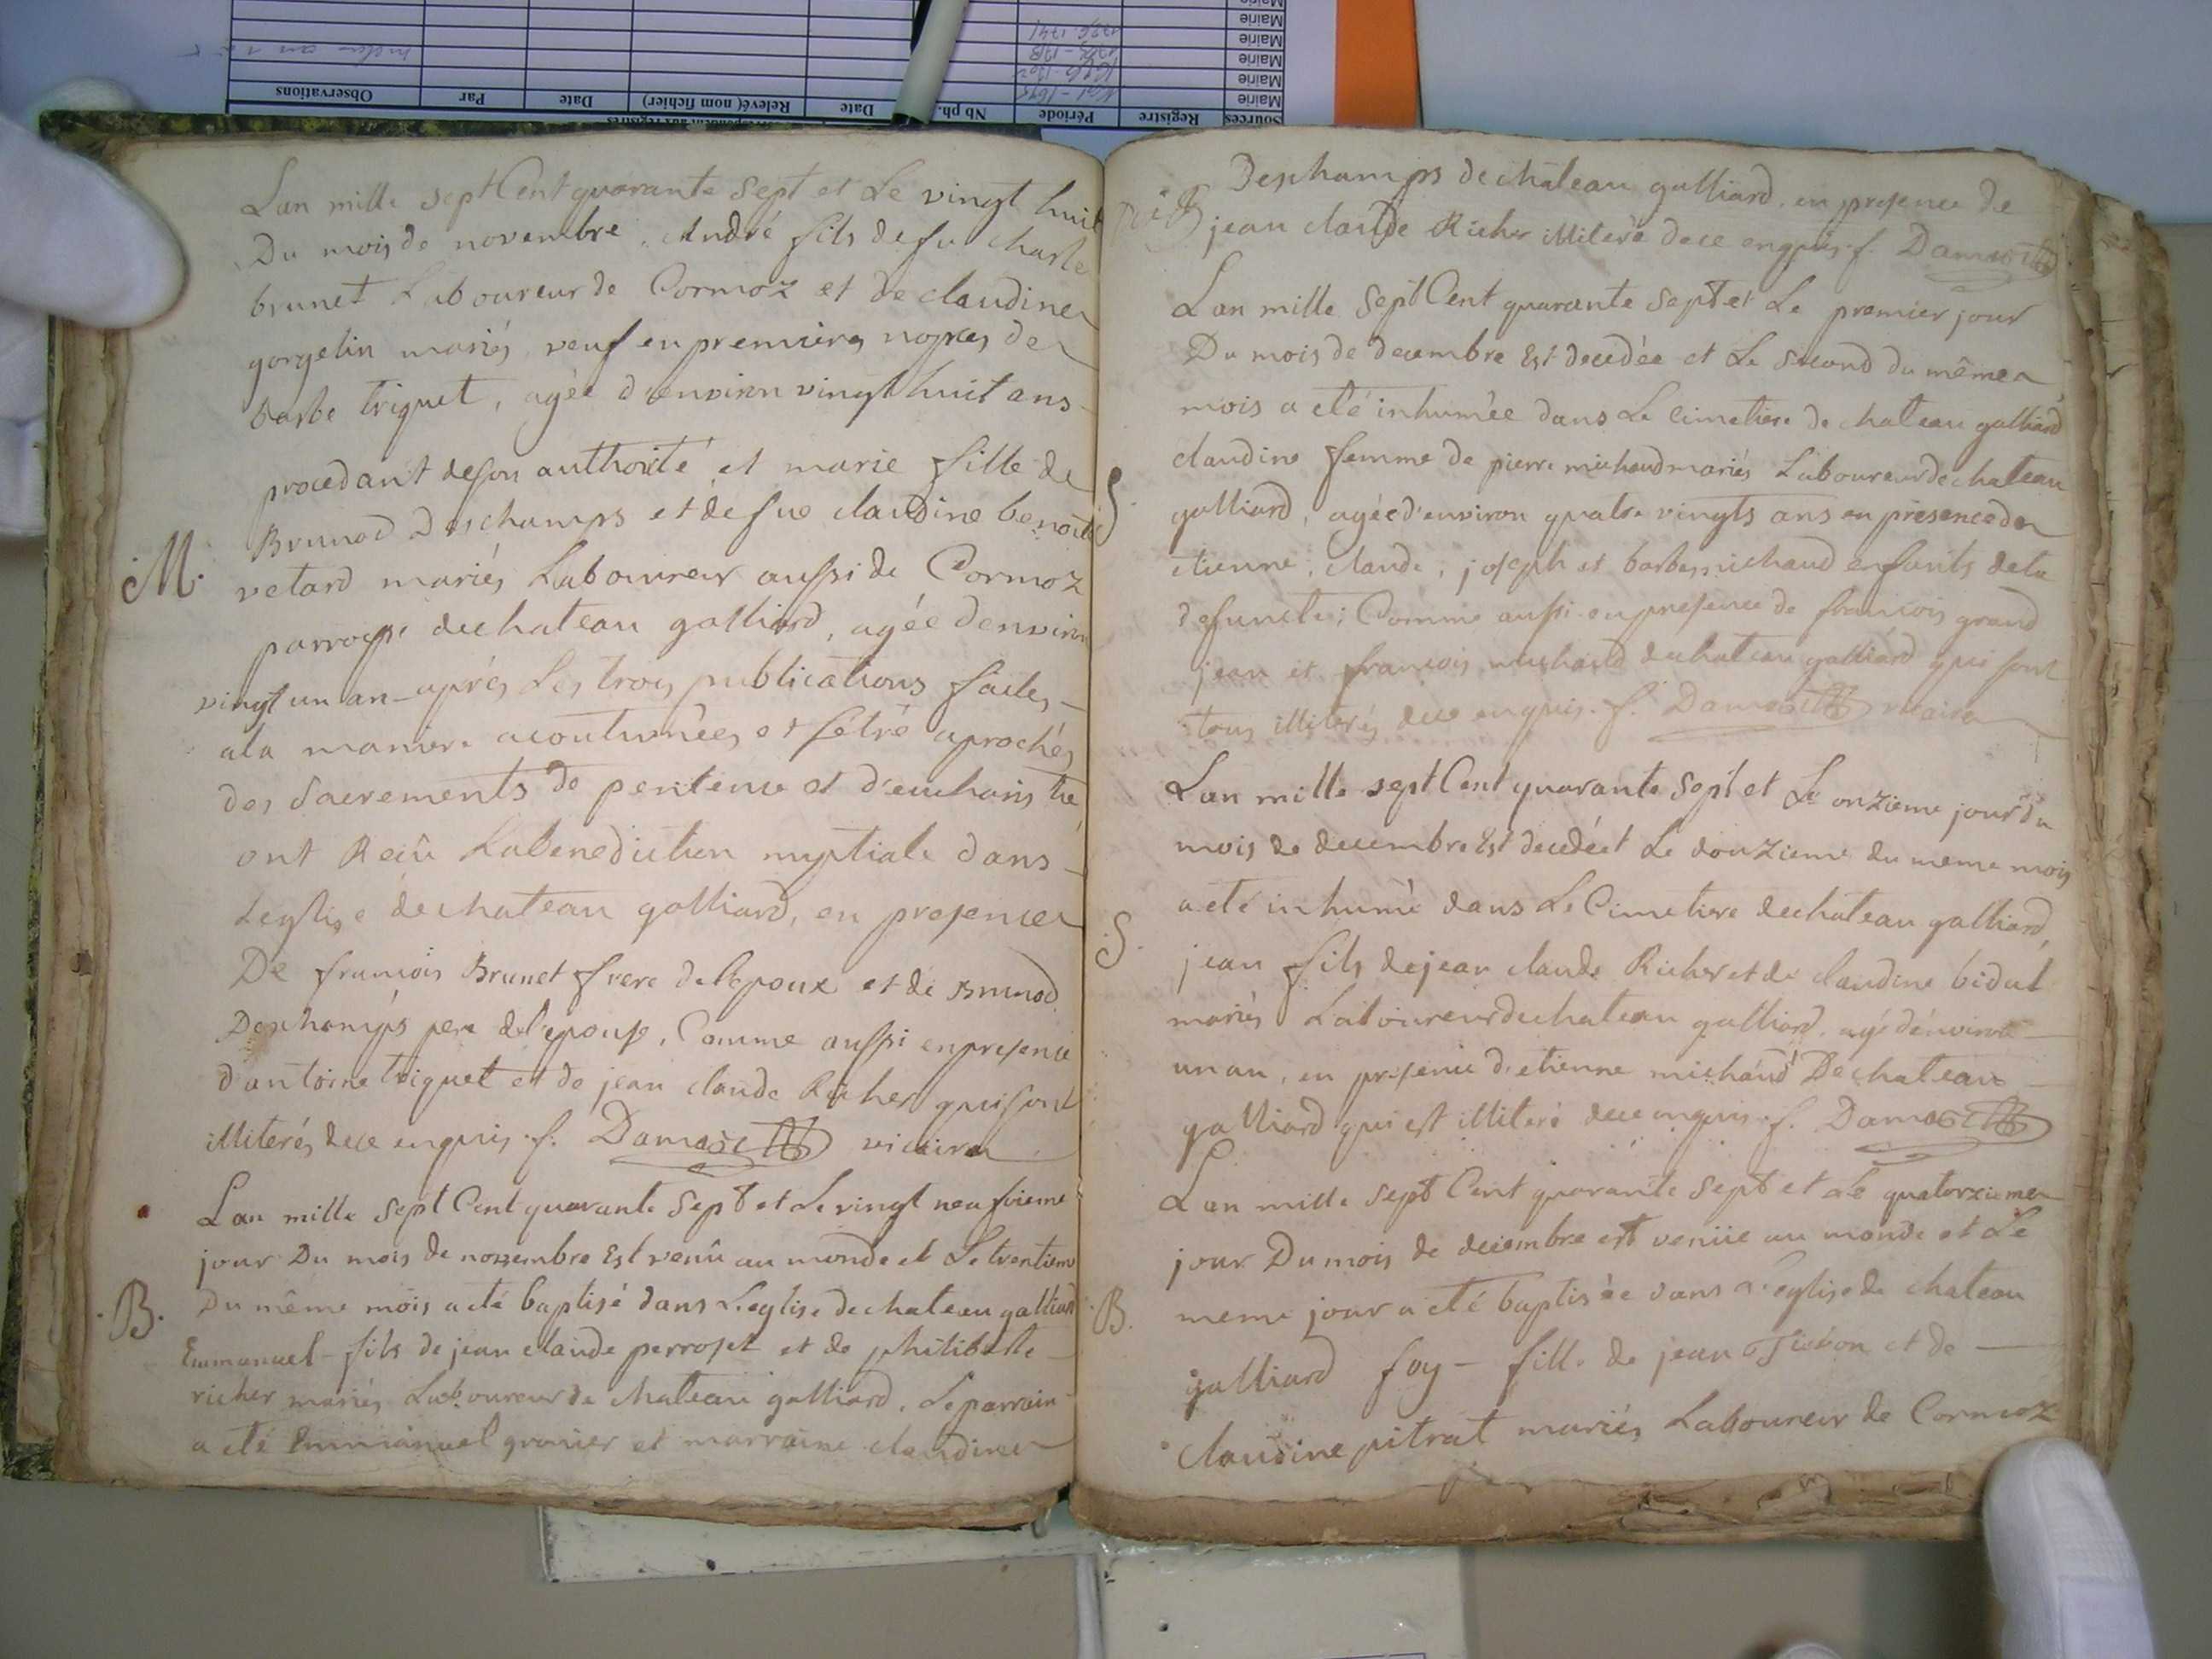 Sources Registre Période Nb ph. Date Relevé (nom fichier) Date Par Observations
Mairie
Mairie
Mairie
Mairie
Mairie
Lan mille sept Cent quarante Sept et Le vingt huit
Du mois de novembre, André fils de fu charle
brunet Laboureur de Cormoz et de claudine
gorgelin mariés, veuf en premieres nopces de
barbe triquet, agée d'environ vingt huit ans
procedant de son authorité et marie fille de
Brunod Deschamps et de fue claudine benoite
M.
vetard mariés Laboureur aussi de Cormoz
parroysse de chateau galliard, agée d'environ
vingt un an - aprés Les troys publications faites
a la maniere acoutumées et s'étre aprochés
des Sacrements de penitence et d'eucharistie
ont Reçû La benediction nuptiale dans
L'eglise de chateau galliard, en presence
De francois Brunet frere de l'epoux et de Brunod
Deschamps pere de l'epouse, Comme aussi en presence
d'antoine triquet et de jean claude Richer qui sont
illiterés de ce enquis. f. Damas vicaire
Lan mille sept Cent quarante Sept et Le vingt neufvieme
jour Du mois de novembre Est venû au monde et Le trentieme
B.
Du même mois a eté baptisé dans L'eglise de chateau galliard
Emmanuel - fils de jean claude perroset et de philiberte
richer mariés Laboureur de chateau galliard, Le parrain
a eté Emmanuel granier et marraine claudine
Deschamps de chateau galliard, en presence de
jean claude Richer illiteré de ce enquis f. Damas
Lan mille Sept Cent quarante sept et Le premier jour
Du mois de decembre Est decedée et Le Second du même
mois a eté inhumée dans Le Cimetiere de chateau galliard
claudine femme de pierre michaud mariés Laboureur de chateau
S.
galliard, agée d'environ quatre vingts ans en presence de
etienne, claude, joseph et barbe michaud enfants de la
defuncte; Comme aussi en presence de francois grand
jean et francois michaud de chateau galliard qui sont
tous illiterés de ce enquis. f. Damas vicaire
Lan mille sept Cent quarante Sept et Le onzieme jour du
mois de decembre Est decedé et Le douzieme du meme mois
a eté inhumé dans Le Cimetiere de chateau galliard,
S.
jean fils de jean claude Richer et de claudine bidal
mariés Laboureur de chateau galliard, agé d'environ
un an, en presence d'etienne michaud De chateau
galliard qui est illiteré de ce enquis. f. Damas
Lan mille Sept Cent quarante Sept et Le quatorzieme
jour Du mois de decembre est venüe au monde et Le
B.
meme jour a eté baptisée dans L'eglise de chateau
galliard foy - fille de jean et de
claudine pitrat mariés Laboureur de Cormoz